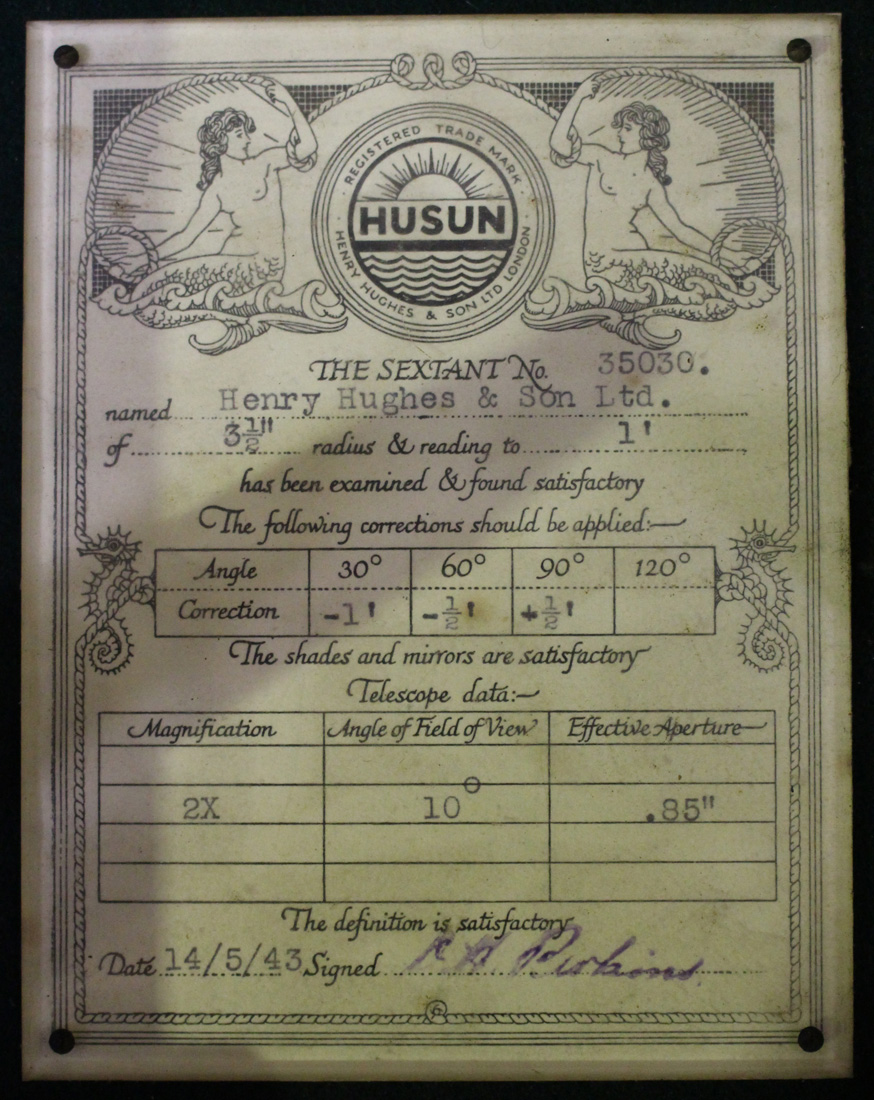 REGISTERED TRADE MARK
HUSUN
HENRY HUGHES & SON LTD LONDON
THE SEXTANT No. 35030.
named Henry Hughes & Son Ltd.
of 3½" radius & reading to 1'
has been examined & found satisfactory
The following corrections should be applied:—
Angle 30° 60° 90° 120°
Correction -1' -½' +½'
The shades and mirrors are satisfactory
Telescope data:—
Magnification Angle of Field of View Effective Aperture
2X 10° .85"
The definition is satisfactory
Date 14/5/43 Signed Perkins